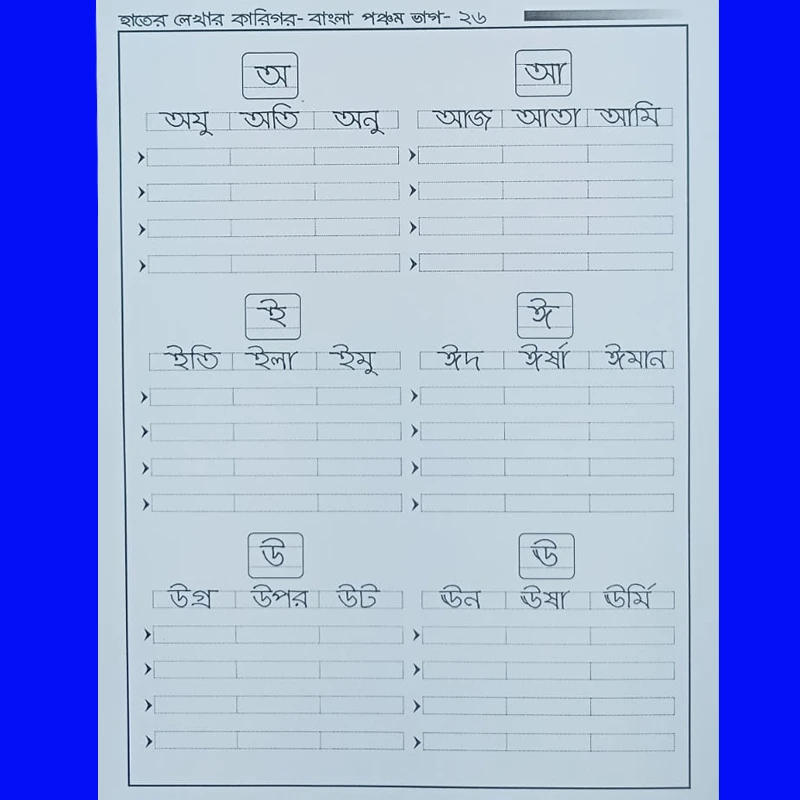 হাতের লেখার কারিগর- বাংলা পঞ্চম ভাগ- ২৬
অ আ
অযু অতি অনু আজ আতা আমি
ই ঈ
ইতি ইলা ইমু ঈদ ঈর্ষা ঈমান
উ ঊ
উগ্র উপর উট ঊন ঊষা ঊর্মি